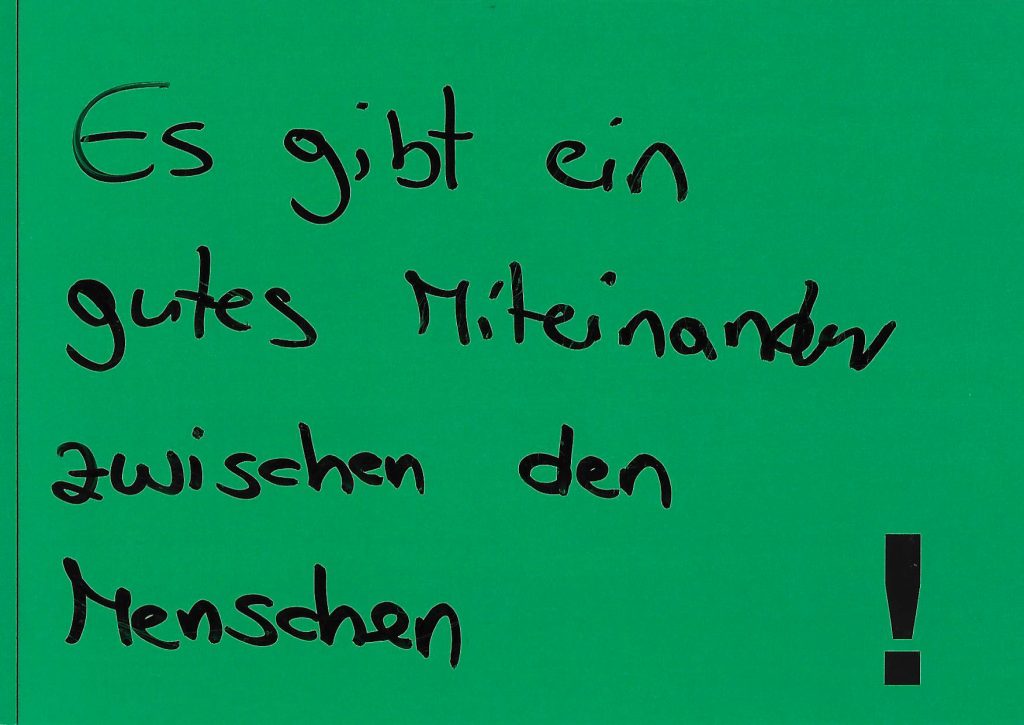 Es gibt ein
gutes Miteinander
zwischen den
Menschen !